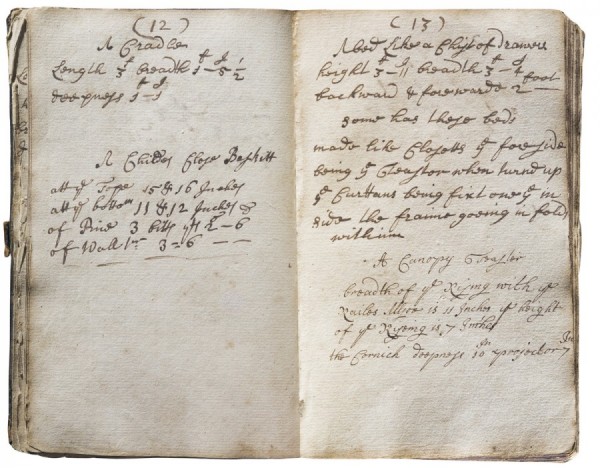 (12)
A Cradle
Length 3 f breadth 1 f - 5 J 1/2
deepness 1 f - 1 J
A Childs Close Baskitt
att ye Tope 15 & 16 Inches
att ye bottom 11 & 12 Inches &
of Pine 3 bitts yts 2 - 6
of Wall 3 - 6
(13)
A bed Like a Chist of drawers
height 3 f - 11 J breadth 3 f - 4 J
backward & forewarde 2 foot
some has these beds
made like Closetts ye foreside
being ye Teastor when turnd up
ye Curttans being fixt one ye in
side the frame goeing in folds
within
A Canopy Teaster
breadth of ye Rising with ye
Railes is 11 Inches ye height
of ye Rising is 7 Inches
the Cornich deepness 10 In projector 7 In